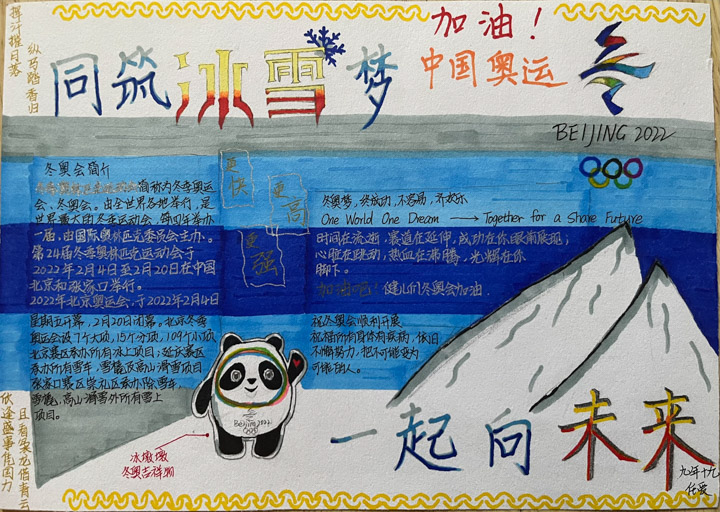 加油！
中国奥运
挥汗摧日落
纵马踏香归
同筑冰雪梦
BEIJING 2022
冬奥会简介
简称为冬季奥运
会、冬奥会。由全世界各地举行，是
世界最大的冬季运动会，每四年举办
一届，由国际奥林匹克委员会主办。
第24届冬季奥林匹克运动会于
2022年2月4日至2月20日在中国
北京和张家口举行。
2022年北京奥运会，于2022年2月4日
星期五开幕，2月20日闭幕。北京冬季
奥运会设7个大项，15个分项，109个小项
北京赛区承办所有冰上项目；延庆赛区
承办所有雪车，雪橇及高山滑雪项目
张家口赛区崇礼区承办除雪车，
雪橇，高山滑雪外所有雪上
项目。
更快
更高
更强
One World One Dream → Together for a Share Future
时间在流逝，赛道在延伸，成功在你眼前展现；
心脏在跳动，热血在沸腾，光辉在你
脚下。
加油吧！健儿们冬奥会加油.
祝冬奥会顺利开展
祝福所有身体有疾病，依旧
不懈努力，把不可能变为
可能的人。
Beijing 2022
冰墩墩
冬奥吉祥物
一起向未来
欣逢盛事佳国力
且看
借青云
九年十九
任